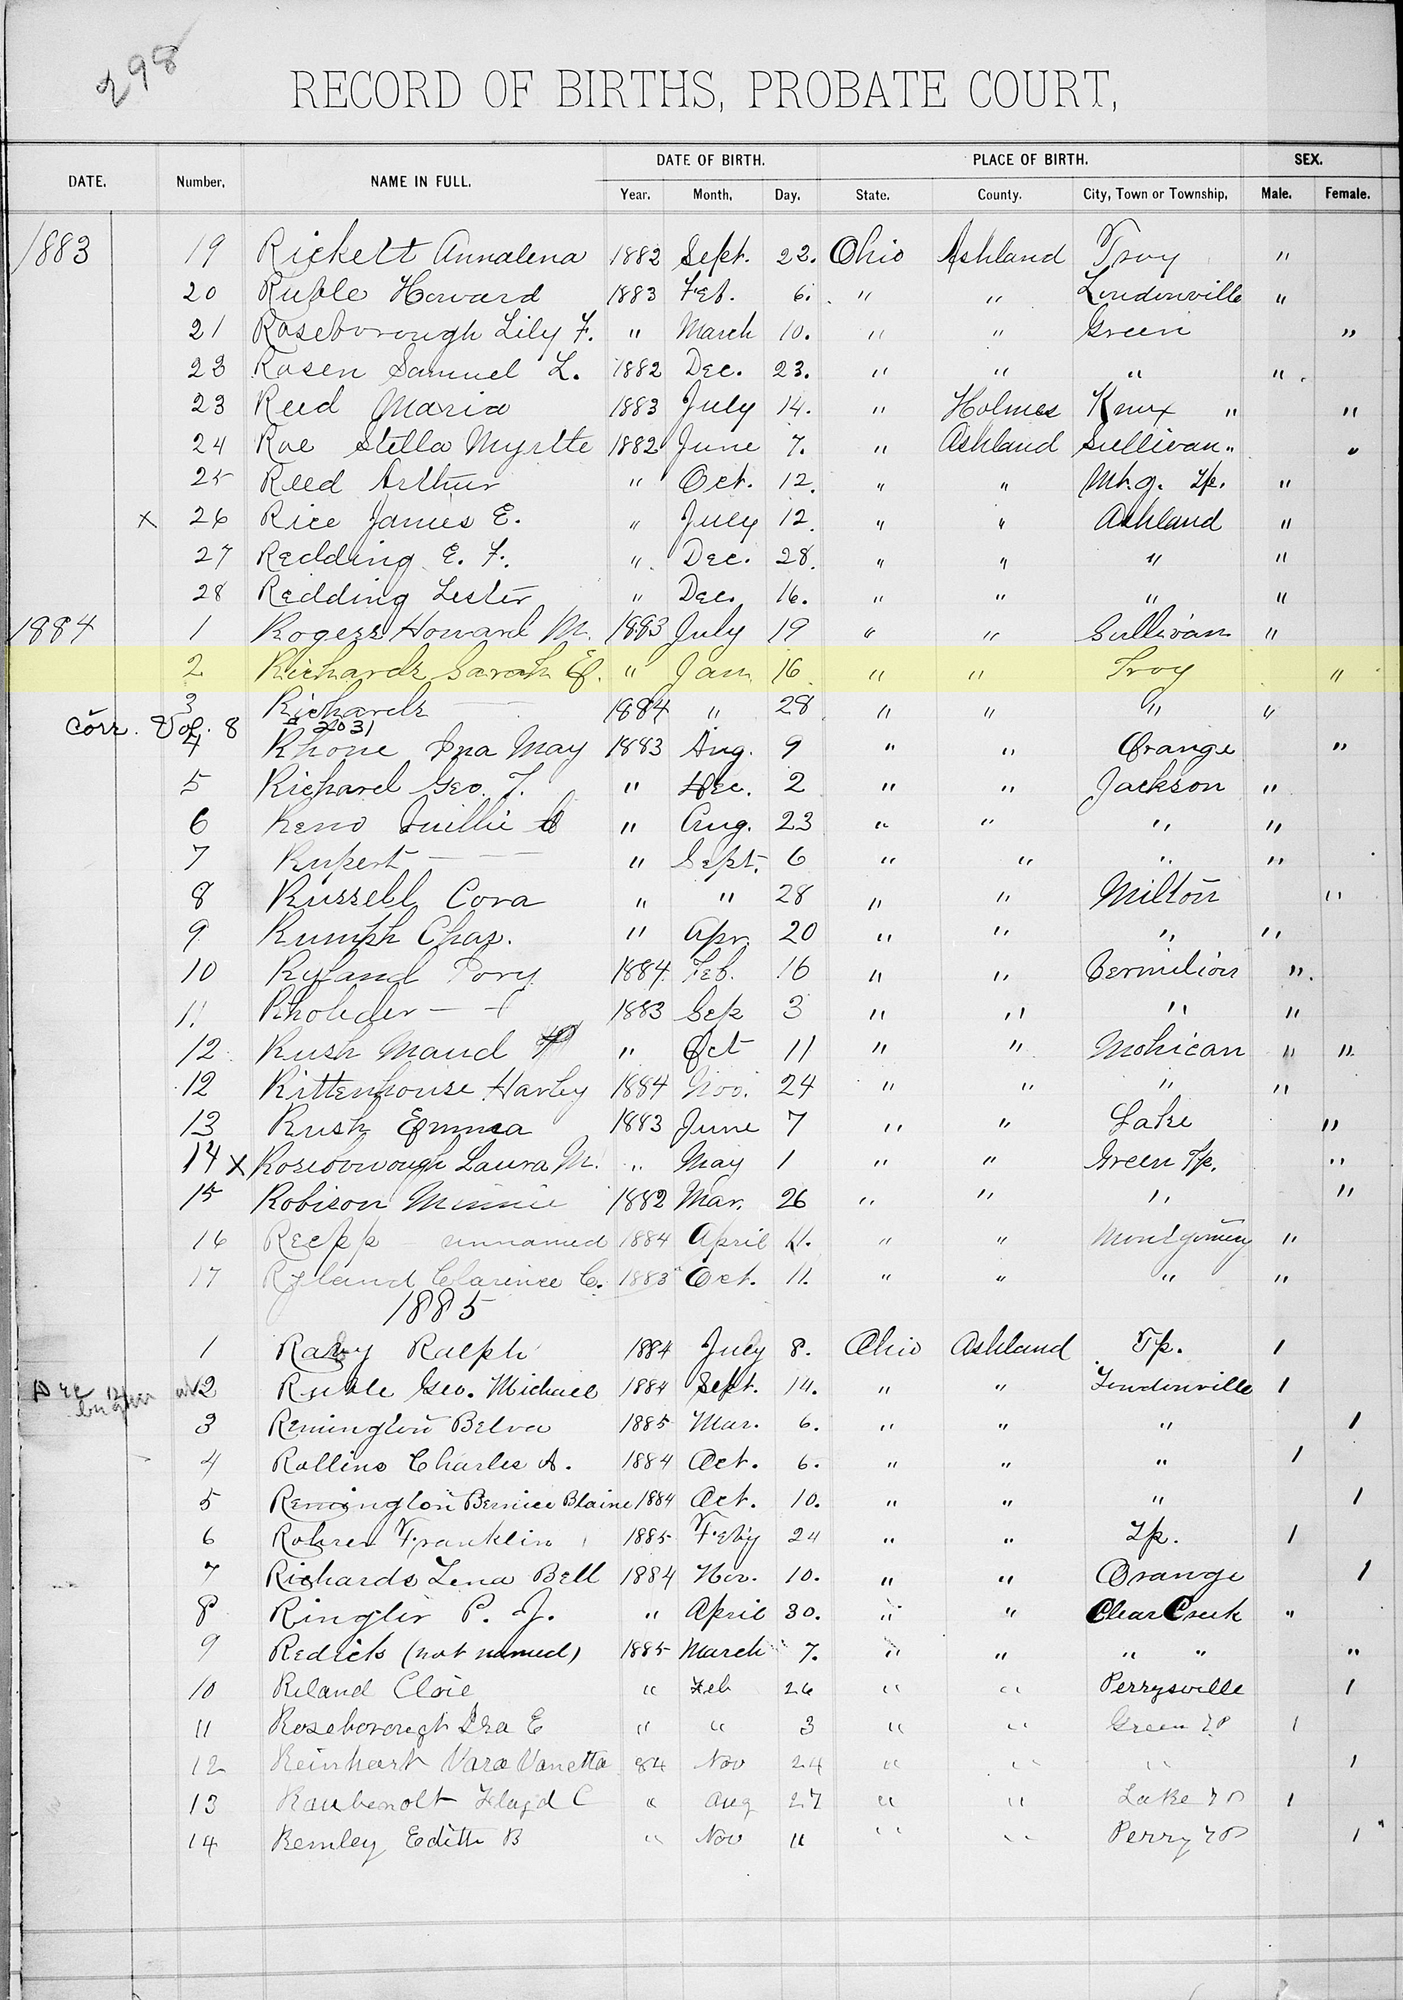 298
RECORD OF BIRTHS, PROBATE COURT,
DATE. Number. NAME IN FULL. DATE OF BIRTH. PLACE OF BIRTH. SEX.
Year. Month. Day. State. County. City, Town or Township. Male. Female.
1883 19 Rickett Annalena 1882 Sept. 22. Ohio Ashland Troy "
20 Ruble Howard 1883 Feb. 6. " " Loudonville "
21 Roseborough Lily F. " March 10. " " Green "
23 Rosen Samuel L. 1882 Dec. 23. " " " "
23 Reed Maria 1883 July 14. " Holmes Knox " "
24 Roe Stella Myrtte 1882 June 7. " Ashland Sullivan " "
25 Reed Arthur " Oct. 12. " " Mt.g. Tp. "
x 26 Rice James E. " July 12. " " Ashland "
27 Redding E. F. " Dec. 28. " " " "
28 Redding Lester " Dec. 16. " " " "
1884 1 Rogers Howard M. 1883 July 19 " " Sullivan "
2 Richards Sarah E. " Jan 16 " " Troy "
3 Richards — 1884 " 28 " " " "
Corr. Vol. 8 2031
4 Rhone Ina May 1883 Aug. 9 " " Orange "
5 Richard Geo. F. " Dec. 2 " " Jackson "
6 Reno Willie " Aug. 23 " " " "
7 Rupert — — " Sept. 6 " " " "
8 Russell Cora " " 28 " " Milton "
9 Rumph Chas. " Apr. 20 " " " "
10 Ryland Pory 1884 Feb. 16 " " Vermilion "
11 — 1883 Sep 3 " " " "
12 Rush Maud " Oct 11 " " Mohican " "
12 Rittenhouse Harley 1884 Nov. 24 " " " "
13 Rush Emma 1883 June 7 " " Lake "
14 x Roseborough Laura M. " May 1 " " Green Tp. "
15 Robison Minnie 1882 Mar. 26 " " " "
16 Repp unnamed 1884 April 11. " " Montgomery "
17 Ryland Clarence C. 1883 Oct. 11. " " " "
1885
1 Ralph 1884 July 8. Ohio Ashland Tp. 1
2 Ruble Geo. Michael 1884 Sept. 14. " " Loudonville 1
3 Remington Belva 1885 Mar. 6. " " " 1
4 Rollins Charles A. 1884 Oct. 6. " " " 1
5 Remington Bernice Blaine 1884 Oct. 10. " " " 1
6 Rohrer Franklin 1885 Feby 24 " " Tp. 1
7 Richards Lena Bell 1884 Nov. 10. " " Orange 1
8 Ringler P. J. " April 30. " " Clear Creek "
9 Redick (not named) 1885 March 7. " " " " "
10 Reland Cloie " Feb 26 " " Perrysville 1
11 Roseborough Ira E " " 3 " " Green TP 1
12 Reinhart Vara Vanetta 84 Nov 24 " " " 1
13 Raubenolt Floyd C " Aug 27 " " Lake TP 1
14 Remley Edith B " Nov 11 " " Perry TP 1